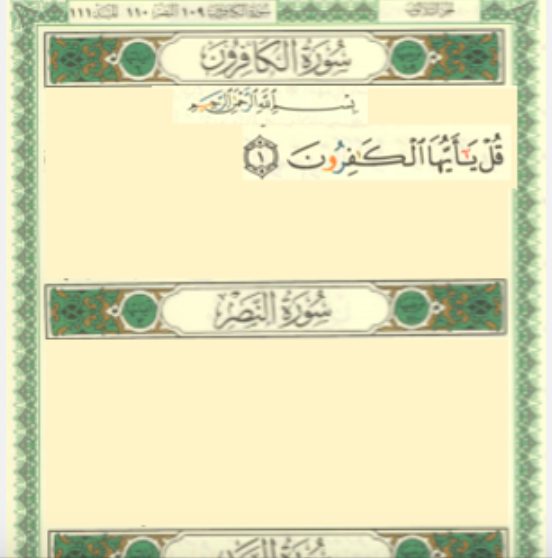 سورة الكافرون ١٠٩ النصر ١١٠ المسد ١١١
الجزء الثلاثون
سُورَةُ الْكَافِرُونَ
بِسْمِ اللَّهِ الرَّحْمَٰنِ الرَّحِيمِ
قُلْ يَـٰٓأَيُّهَا ٱلْكَـٰفِرُونَ ١
سُورَةُ النَّصْرِ